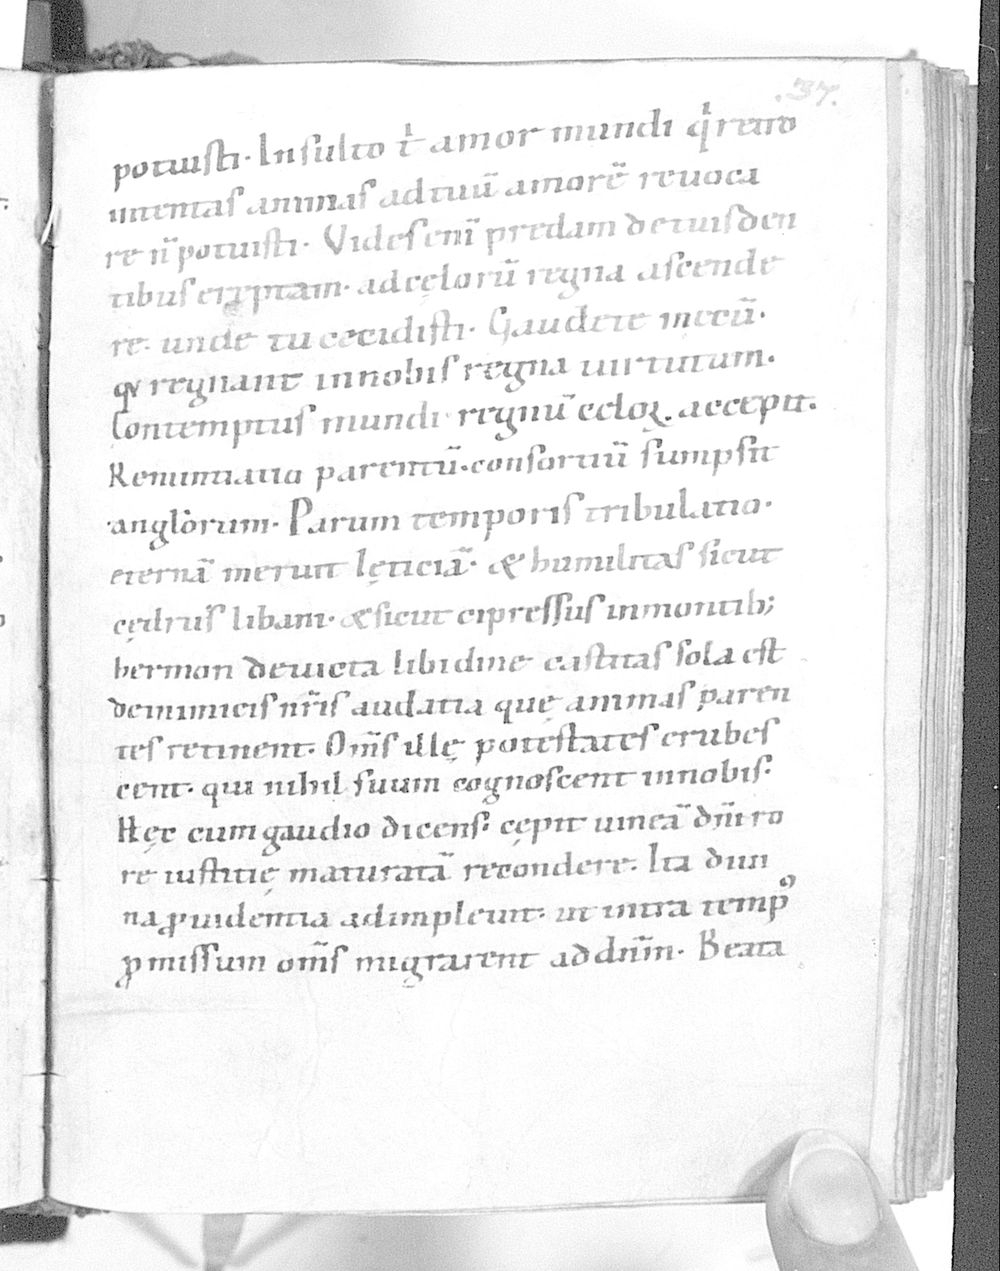 .37.
potuisti. Insulto t' amor mundi q' retro
uitentas animas ad tuū amorē reuoca
re n̄ potuisti. Vides enī predam de tuis den
tibus ereptam. ad cęlorū regna ascende
re. unde tu cecidisti. Gaudete mecū.
regnant in nobis regna uirtutum.
Contemptus mundi regnū celoꝝ accepit.
Renuntiatio parentū. consortiū sumpsit
anglòrum. Parum temporis tribulatio.
eternā meruit lęticiā. & humilitas sicut
cędrus libani. & sicut cipressus in montib;
hermon deuicta libidine castitas sola est
de inimicis nr̄is audatia quę animas paren
tes retinent. Om̄s illę potestates erubes
cent. qui nihil suum cognoscent in nobis.
Hęc cum gaudio dicens. cępit uineā dn̄i ro
re iustitię maturatā recondere. Ita diui
na ꝓuidentia adimpleuit. ut intra temp'
ꝓmissum om̄s migrarent ad dn̄m. Beata